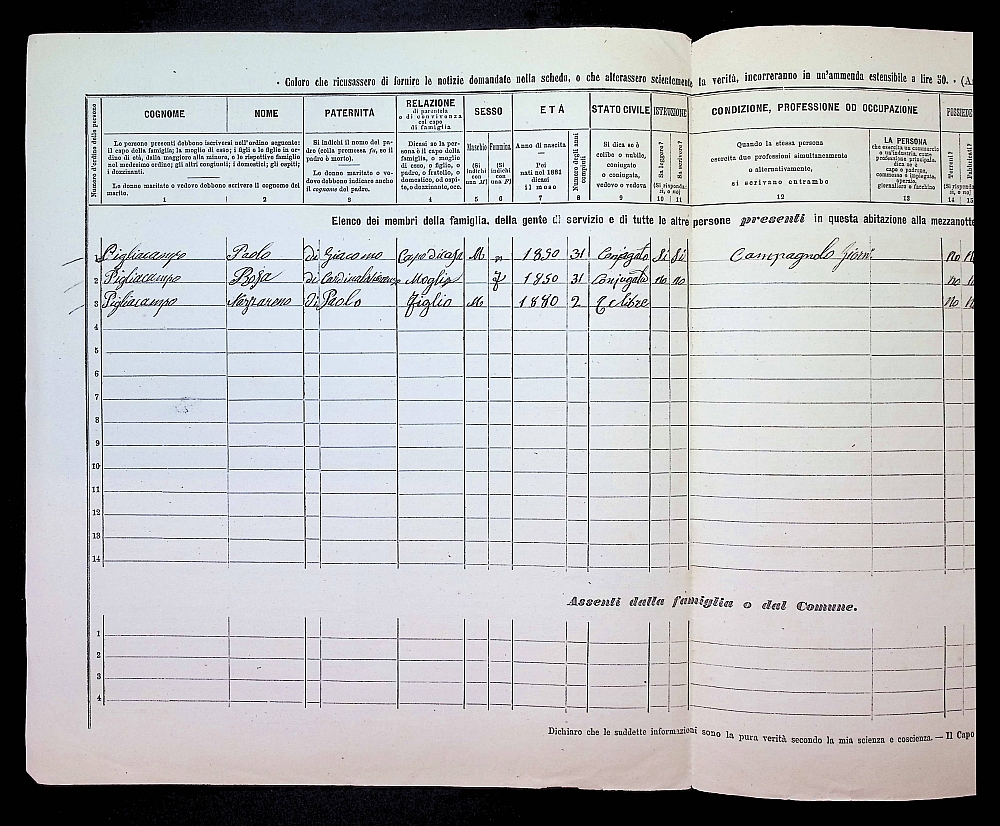 - Coloro che ricusassero di fornire le notizie domandate nella scheda, o che alterassero scientemente la verità, incorreranno in un'ammenda estensibile a lire 50. - (A
Numero d'ordine delle persone
COGNOME
Le persone presenti debbono iscriversi nell'ordine seguente: il capo della famiglia; la moglie di esso; i figli e le figlie in ordine di età, dalla maggiore alla minore, e le rispettive famiglie nel medesimo ordine; gli altri congiunti; i domestici; gli ospiti; i dozzinanti.
Le donne maritate o vedove debbono scrivere il cognome del marito.
1
NOME
2
PATERNITÀ
Si indichi il nome del padre (colla premessa fu, se il padre è morto).
Le donne maritate o vedove debbono indicare anche il cognome del padre.
3
RELAZIONE
di parentela
o di convivenza
col capo
di famiglia
Dicasi se la persona è il capo della famiglia, o moglie di esso, o figlio, o padre, o fratello, o domestico, od ospite, o dozzinante, ecc.
4
SESSO
Maschio
(Si indichi con una M)
5
Femmina
(Si indichi con una F)
6
ETÀ
Anno di nascita
Pei nati nel 1881 dicasi il mese
7
Numero degli anni compiuti
8
STATO CIVILE
Si dica se è
celibe o nubile,
coniugato
o coniugata,
vedovo o vedova
9
ISTRUZIONE
Sa leggere?
Sa scrivere?
(Si risponda: sì, o no)
10 11
CONDIZIONE, PROFESSIONE OD OCCUPAZIONE
Quando la stessa persona
esercita due professioni simultaneamente
o alternativamente,
si scrivano entrambe
12
LA PERSONA
che esercita un commercio o un'industria, come professione principale, dica se è capo o padrone, commesso o impiegato, operaio, giornaliero o facchino
13
POSSIEDE
Terreni?
Fabbricati?
(Si risponda: sì, o no)
14 15
Elenco dei membri della famiglia, della gente di servizio e di tutte le altre persone presenti in questa abitazione alla mezzanotte
1 Pigliacampo Paolo di Giacomo Capo di casa M 1850 31 Conjugato Si Si Campagnolo no
2 Pigliacampo Rosa di Moglie F 1850 31 Conjugata no no no
3 Pigliacampo Nazzareno di Paolo Figlio M 1880 2 Celibe no
4
5
6
7
8
9
10
11
12
13
14
Assenti dalla famiglia o dal Comune.
1
2
3
4
Dichiaro che le suddette informazioni sono la pura verità secondo la mia scienza e coscienza. — Il Capo